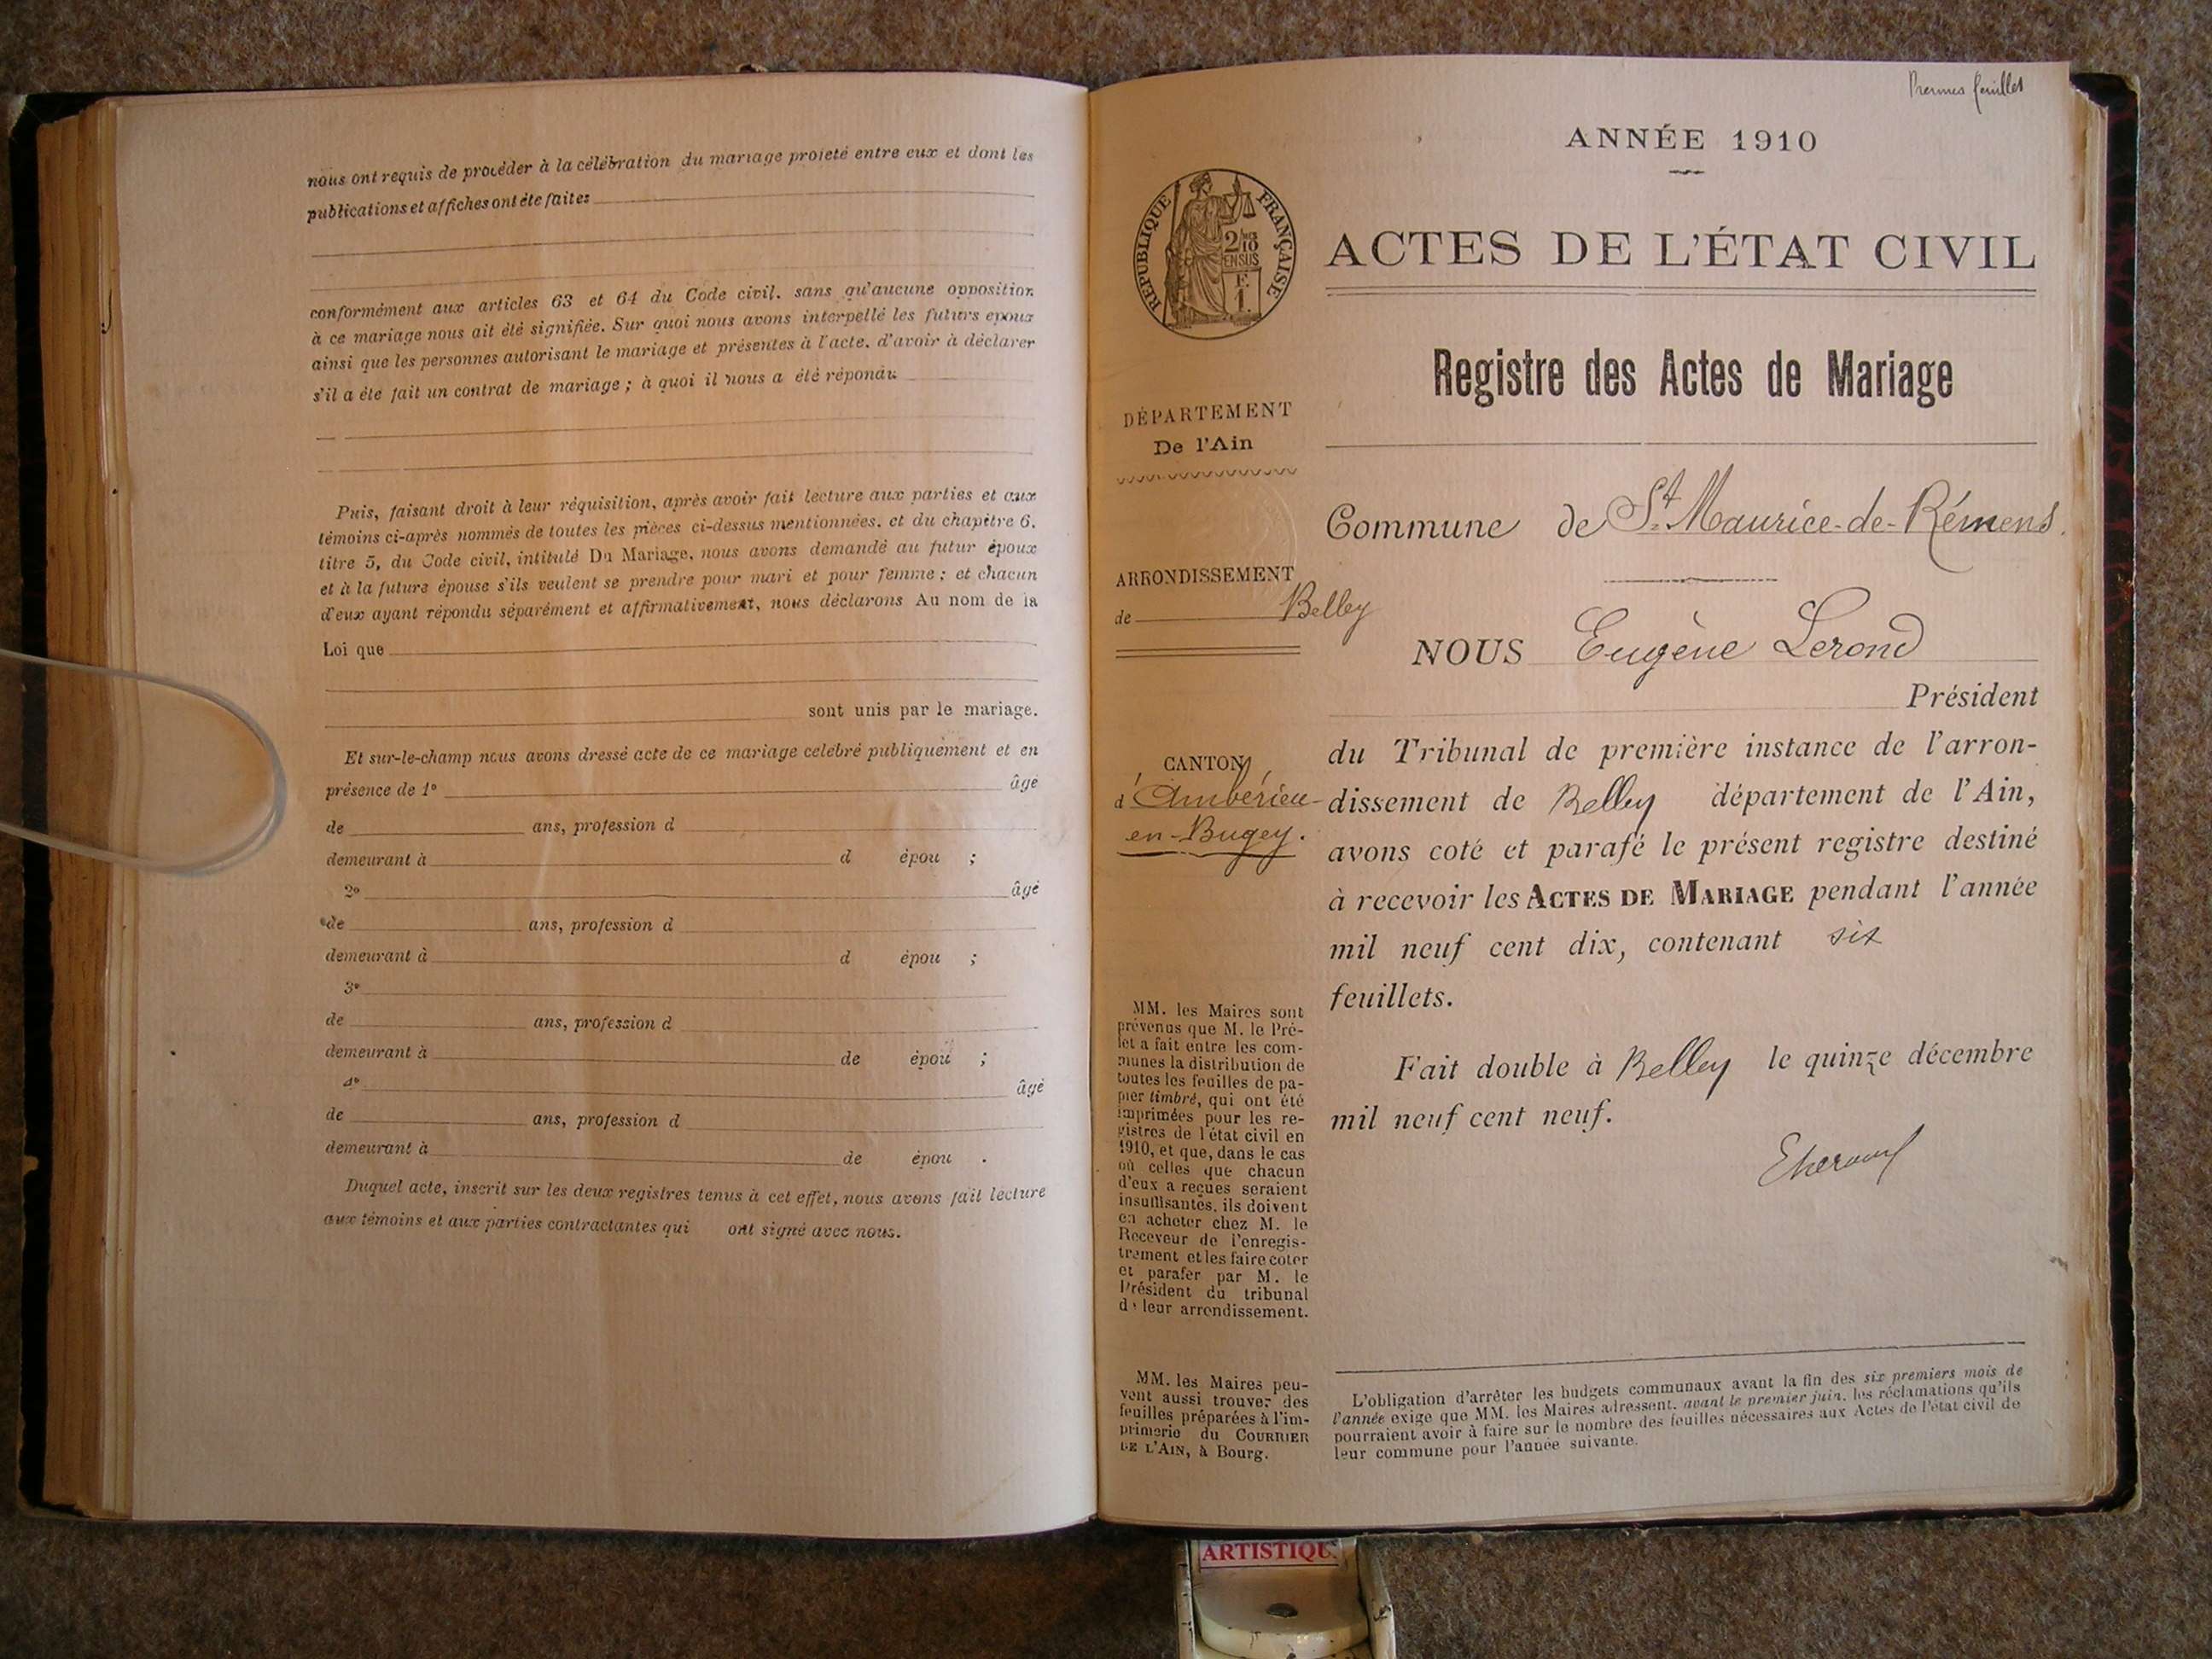 nous ont requis de procéder à la célébration du mariage projeté entre eux et dont les
publications et affiches ont été faites
conformément aux articles 63 et 64 du Code civil. sans qu'aucune opposition
à ce mariage nous ait été signifiée. Sur quoi nous avons interpellé les futurs epoux
ainsi que les personnes autorisant le mariage et présentes à l'acte. d'avoir à déclarer
s'il a été fait un contrat de mariage ; à quoi il nous a été répondu
Puis, faisant droit à leur réquisition, après avoir fait lecture aux parties et aux
témoins ci-après nommés de toutes les pièces ci-dessus mentionnées. et du chapitre 6.
titre 5, du Code civil, intitulé Du Mariage, nous avons demandé au futur époux
et à la future épouse s'ils veulent se prendre pour mari et pour femme ; et chacun
d'eux ayant répondu séparément et affirmativement, nous déclarons Au nom de la
Loi que
sont unis par le mariage.
Et sur-le-champ nous avons dressé acte de ce mariage celébré publiquement et en
présence de 1° âgé
de ans, profession d
demeurant à d épou ;
2° âgé
de ans, profession d
demeurant à d épou ;
3°
de ans, profession d
demeurant à de épou ;
4° âgé
de ans, profession d
demeurant à de épou .
Duquel acte, inscrit sur les deux registres tenus à cet effet, nous avons fait lecture
aux témoins et aux parties contractantes qui ont signé avec nous.
feuillet
ANNÉE 1910
RÉPUBLIQUE FRANÇAISE
2/10
EN SUS
F.
1.
ACTES DE L'ÉTAT CIVIL
Registre des Actes de Mariage
DÉPARTEMENT
De l'Ain
ARRONDISSEMENT
de Belley
CANTON
d'Ambérieu-
en-Bugey.
MM. les Maires sont
prévenus que M. le Pré-
fet a fait entre les com-
munes la distribution de
toutes les feuilles de pa-
pier timbré, qui ont été
imprimées pour les re-
gistres de l'état civil en
1910, et que, dans le cas
où celles que chacun
d'eux a reçues seraient
insuffisantes, ils doivent
en acheter chez M. le
Receveur de l'enregis-
trement et les faire coter
et parafer par M. le
Président du tribunal
de leur arrondissement.
MM. les Maires peu-
vent aussi trouver des
feuilles préparées à l'im-
primerie du COURRIER
DE L'AIN, à Bourg.
Commune de St Maurice-de-Rémens.
NOUS Eugène Lerond
Président
du Tribunal de première instance de l'arron-
dissement de Belley département de l'Ain,
avons coté et parafé le présent registre destiné
à recevoir les ACTES DE MARIAGE pendant l'année
mil neuf cent dix, contenant six
feuillets.
Fait double à Belley le quinze décembre
mil neuf cent neuf.
L'obligation d'arrêter les budgets communaux avant la fin des six premiers mois de
l'année exige que MM. les Maires adressent. avant le premier juin. les réclamations qu'ils
pourraient avoir à faire sur le nombre des feuilles nécessaires aux Actes de l'état civil de
leur commune pour l'année suivante.